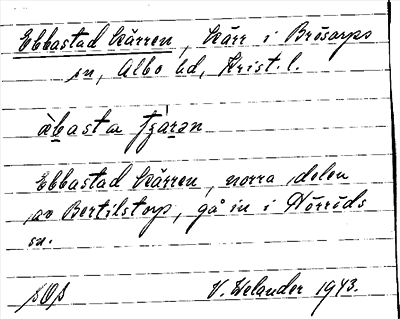 Ebbastad Kärren, Kärr i Brösarps
sn, Albo hd, Krist. l.
àbasta
Ebbastad Kärren, norra delen
av Bertilstorp, gå in i Hörröds
sn.
V. Welander 1943.